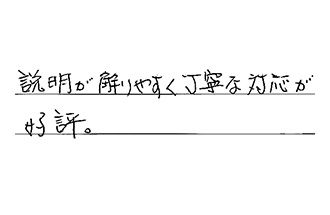 説明が解りやすく丁寧な対応が
好評。